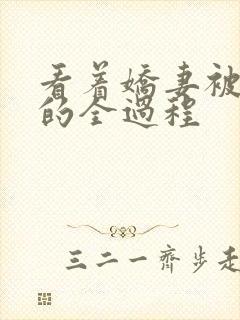 看着嬌妻被
的全過程
三二一齊步走